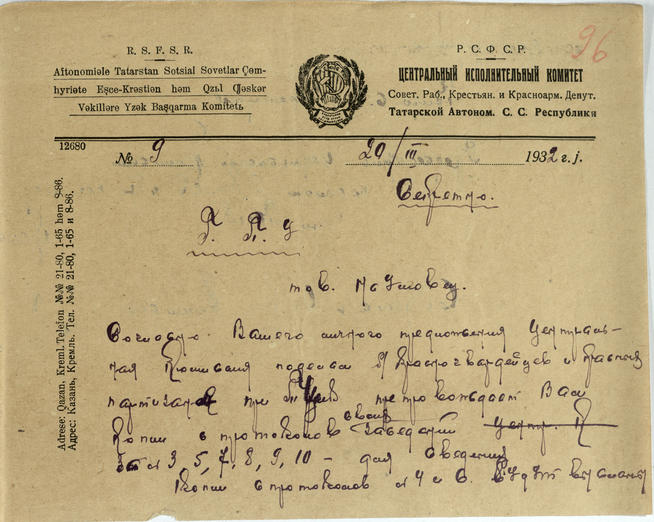 96
R. S. F. S. R.
Aftonomiəle Tatarstan Sotsial Sovetlar Çəm-
hyriəte Eşce-Krəstiən həm Qzьl Ƣəskər
Vəkilləre Yzək Başqarma Komitetь
Р. С. Ф. С. Р.
ЦЕНТРАЛЬНЫЙ ИСПОЛНИТЕЛЬНЫЙ КОМИТЕТ
Совет. Раб., Крестьян. и Красноарм. Депут.
Татарской Автоном. С. С. Республики
12680
№ 9
20/III 1932 г. j.
Секретно.
тов.
Согласно Вашего личного предложения Централь-
ная Комиссия по делам б/Красногвардейцев и Красных
партизан при ТЦИК препровождает Вам
Копии с протоколов своих заседаний Центр. К
за № 3, 5, 7, 8, 9, 10 - для сведения
Копии с протоколов № 4 и 6.
Adrese: Qazan, Kreml. Telefon №№ 21-80, 1-65 həm 8-86.
Адрес: Казань, Кремль. Тел. №№ 21-80, 1-65 и 8-86.